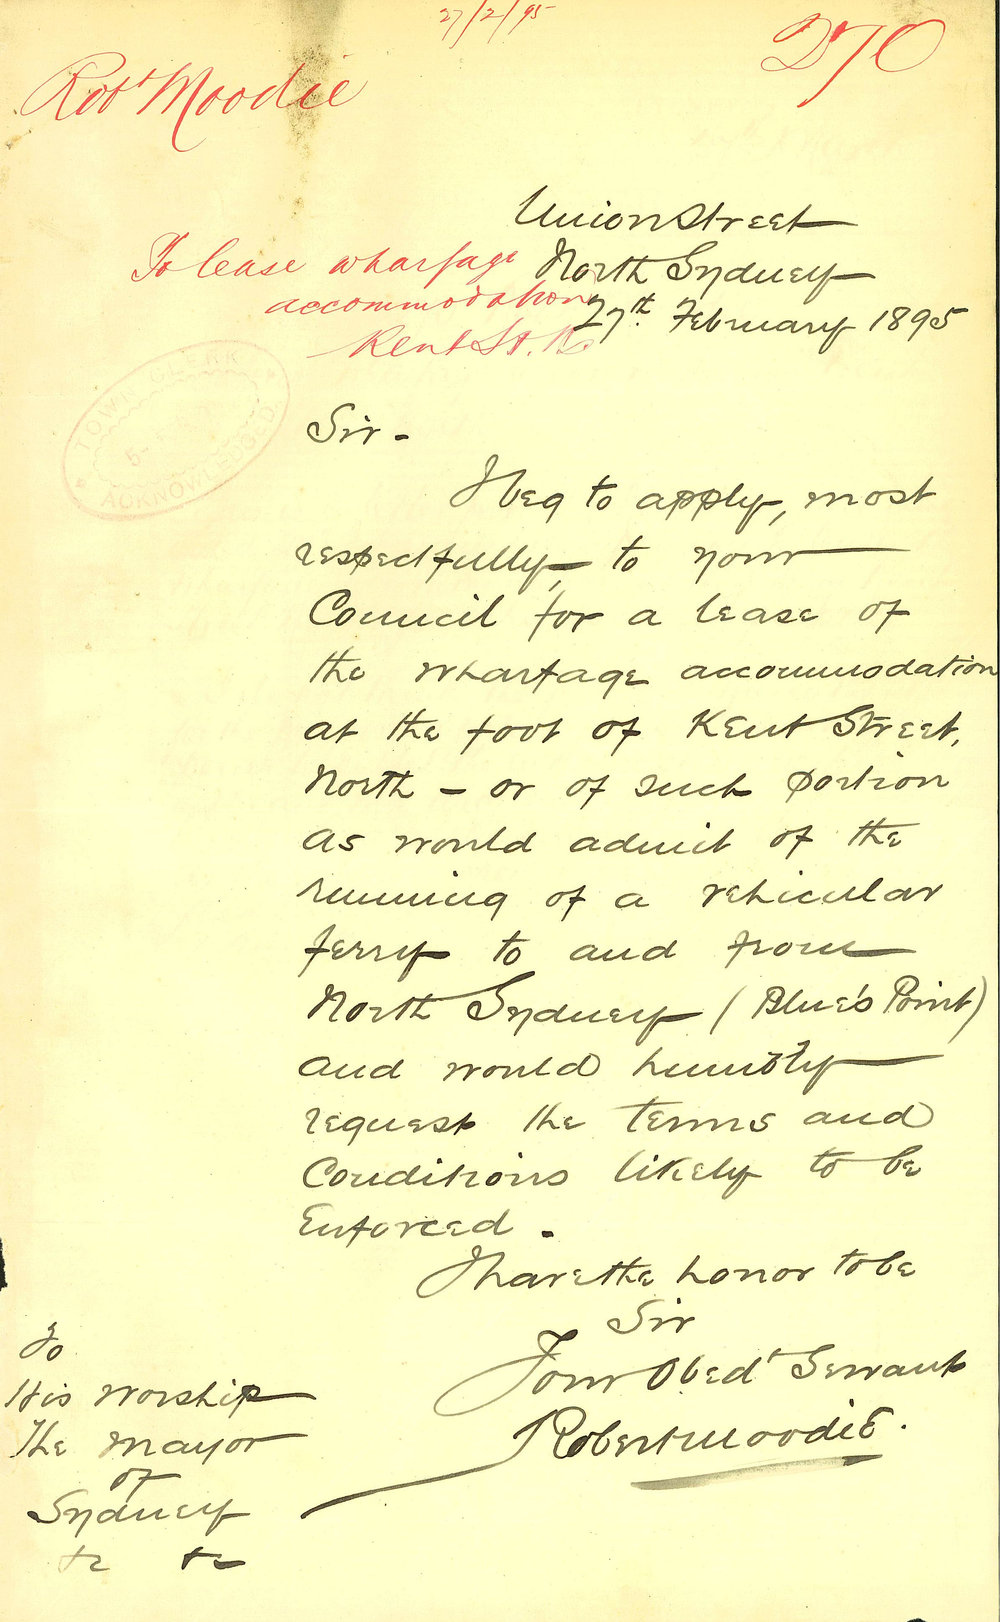 27/2/95
270
Robt Moodie
Union Street
North Sydney
27th. February 1895
To lease wharfage
accommodation
Kent St. N
TOWN CLERK
5-
ACKNOWLEDGED
Sir -
I beg to apply, most
respectfully, to your
Council for a lease of
the wharfage accommodation
at the foot of Kent Street,
North - or of such portion
as would admit of the
running of a vehicular
ferry to and from
North Sydney (Blue's Point)
and would humbly
request the terms and
Conditions likely to be
Enforced.
I have the honor to be
Sir
Your Obedt Servant
Robert Moodie.
To
His Worship
The Mayor
of
Sydney
&c &c